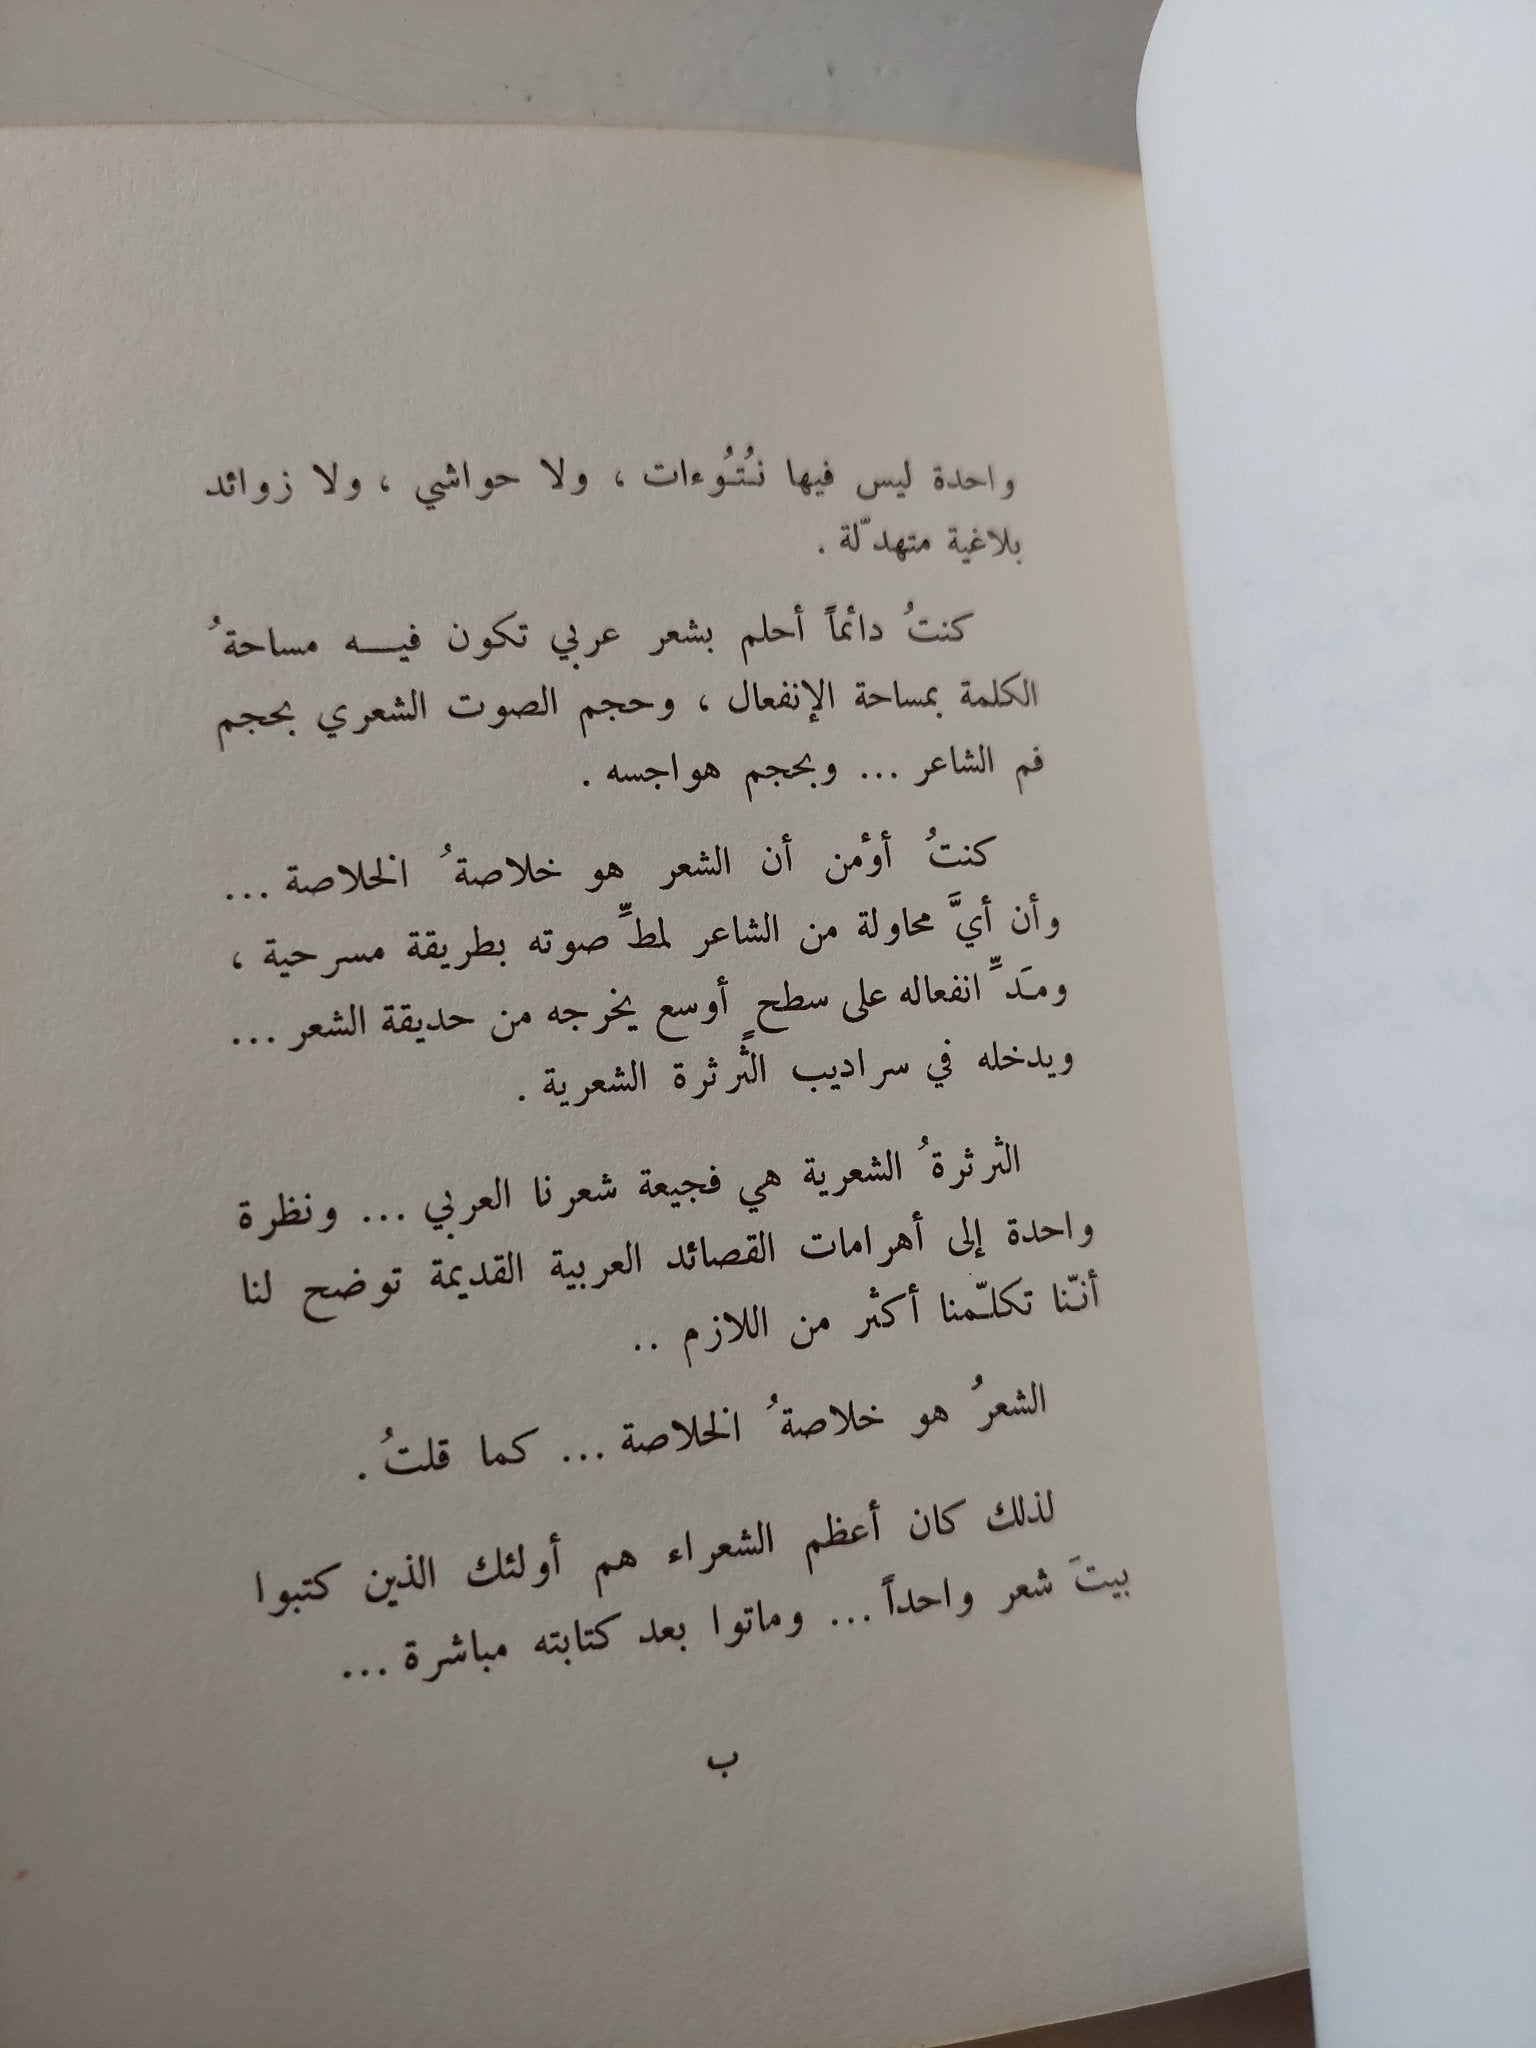 واحدة ليس فيها نُتُوءات ، ولا حواشي ، ولا زوائد
بلاغية متهدّلة .
كنتُ دائماً أحلم بشعر عربي تكون فيـــه مساحةُ
الكلمة بمساحة الإنفعال ، وحجم الصوت الشعري بحجم
فم الشاعر ... وبحجم هواجسه .
كنتُ أوٴمن أن الشعر هو خلاصةُ الخلاصة ...
وأن أيَّ محاولة من الشاعر لمطِّ صوته بطريقة مسرحية ،
ومَدِّ انفعاله على سطح أوسع يخرجه من حديقة الشعر ...
ويدخله في سراديب الثَّرثرة الشعرية .
الثرثرةُ الشعرية هي فجيعة شعرنا العربي ... ونظرة
واحدة إلى أهرامات القصائد العربية القديمة توضح لنا
أنّنا تكلّمنا أكثر من اللازم ..
الشعرُ هو خلاصةُ الخلاصة ... كما قلتُ .
لذلك كان أعظم الشعراء هم أولئك الذين كتبوا
بيتَ شعر واحداً ... وماتوا بعد كتابته مباشرة ...
ب